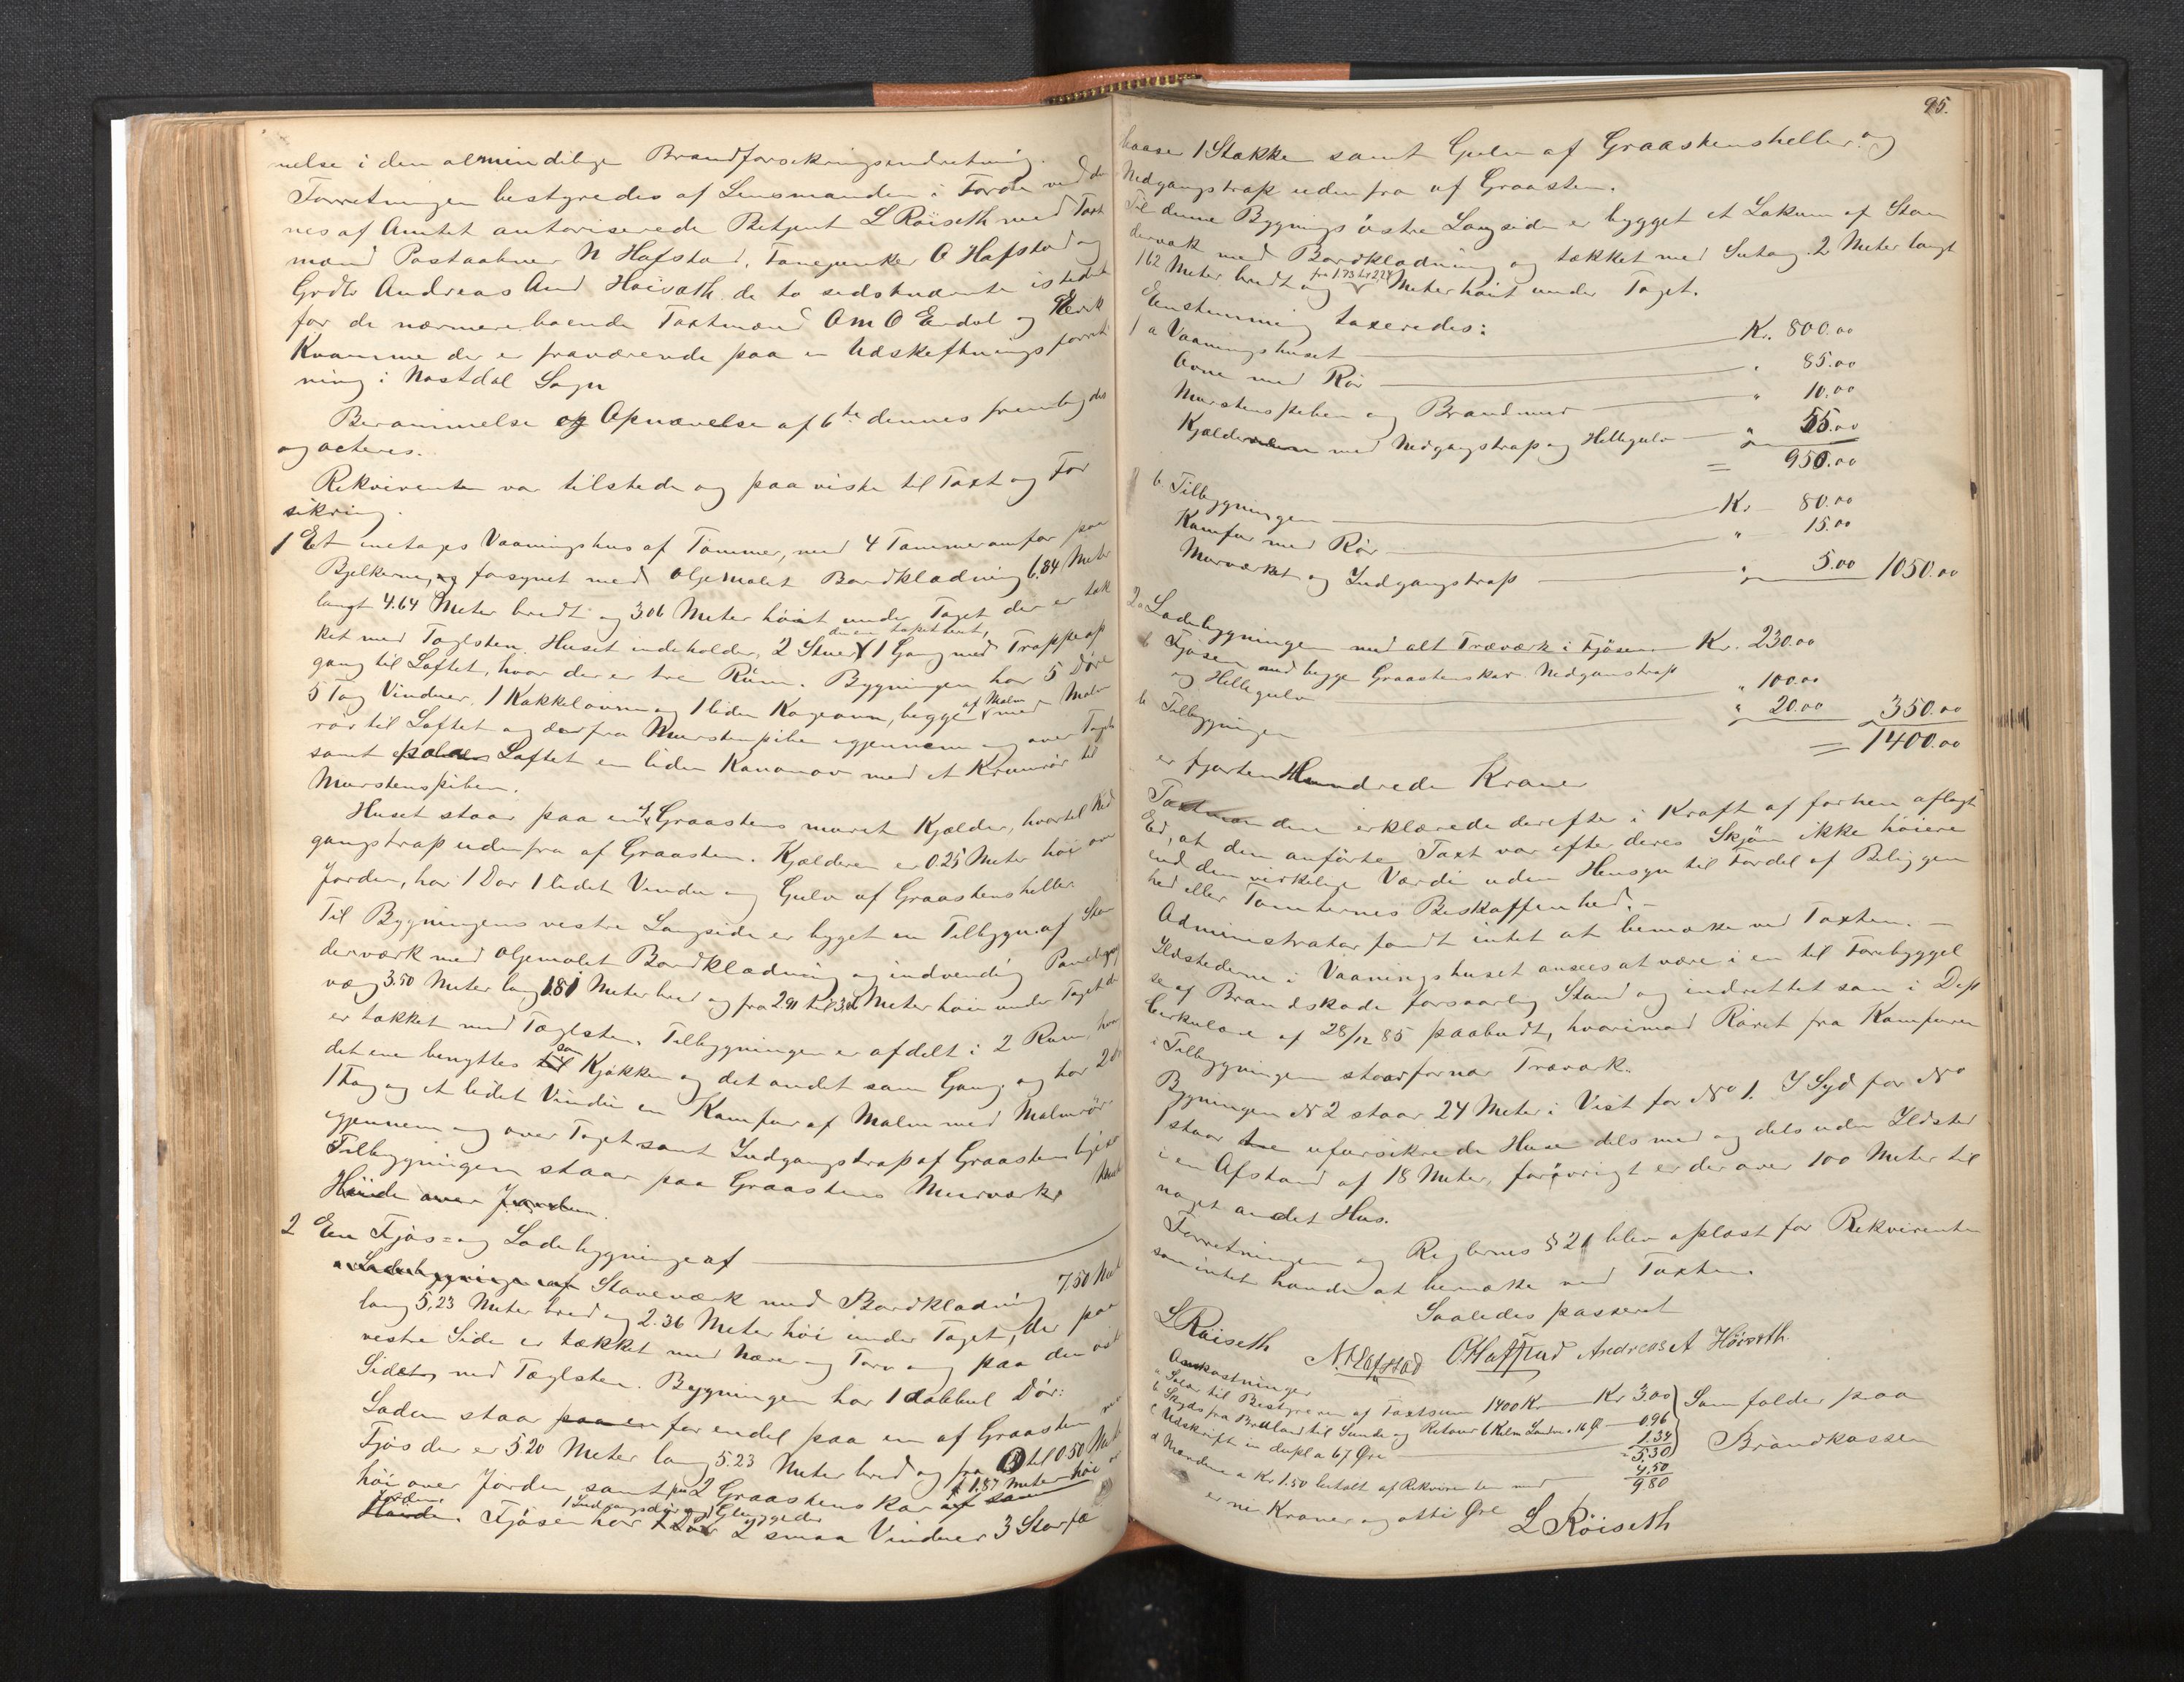 nelse i den almindelige Brandforsikringsindretning.
Forretningen bestyredes af Lensmanden i Førde ved de
nes af Amtet autoriserede Betjent L Röiseth med Taxt
mænd Postaabner N Hafstad, Fanejunker O Hafstad og
Grdbr Andreas And Höivath, de to sidstnævnte istedet
for de nærmere boende Taxtmænd Om O Erdal og
Kvamme der er fraværende paa en Udskiftningsforret
ning i Nostdal Sogn
Berammelse og Opnævelse af 6te dennes fremlagdes
og acteres.
Rekvirenten var tilstede og paaviste til Taxt og For
sikring.
1 Et enetages Vaaningshus af Tömmer, med 4 Tømmeromfar paa
Bjelkerne, og forsynet med oljemalet Bordklædning 6.84 Meter
langt 4.64 Meter bredt og 3.06 Meter höit under Taget der er tæk
ket med Taglsten. Huset indeholder, 2 Stuer 1 Gang med Trappeop
gang til Loftet, hvor der er tre Rüm. Bygningen har 5 Döre
5 Fag Vinduer, 1 Kakkelovn og 1 liden Kogeovn, begge af Malm med Malm
rör til Loftet og derfra Murstenspibe igjennem og over Taget
samt paa Loftet en liden Kanonov med et Krumrör til
Murstenspiben.
Huset staar paa en Graastens muret Kjælder, hvortil Ned
gangstrap udenfra af Graasten. Kjælderen er 0.25 Meter höi over
Jorden, har 1 Dør 1 lidet Vindu og Gulv af Graastensheller.
Til Bygningens vestre Langside er bygget en Tilbygn. af Sten
derværk med oljemalet Bordklædning og indvendig Panelings
væg 3.50 Meter lang 1.81 Meter bred og fra 2.91 til 3.06 Meter höi under Taget der
er tækket med Taglsten. Tilbygningen er afdelt i 2 Rum, hvor
det ene benyttes som Kjökken og det andet som Gang og har 2 Dø
1 Fag og et lidet Vindü en Komfur af Malm med Malmrör
igjennem og over Taget samt Indgangstrap af Graasten
Tilbygningen staar paa Graastens Murværk
Höide over Jorden.
2 En Fjös- og Ladebygning af
Ladebygning af Staveværk med Bordklædning 7.50 Meter
lang 5,23 Meter bred og 2.36 Meter höi under Taget, der paa
vestre Side er tækket med Næver og Torv og paa den øst
Side med Taglsten. Bygningen har 1 dobbel Dör:
Laden staar paa en for endel paa en af Graasten
Fjös der er 5.20 Meter lang 5.23 Meter bred og fra til 0.50 Meter
höi over Jorden samt paa 2 Graastenskar 1.87 Meter höi
Jorden. Fjösen har 1 Indgangsdör 2 smaa Vinduer 3 Storfæ
95.
baase 1 Stakke samt Gulv af Graastensheller og
Nedgangstrap udenfra af Graasten.
Til denne Bygnings östre Langside er bygget et Lokum af Sten
derværk med Bordklædning og tækket med Sutag. 2 Meter langt
1.62 Meter bredt og fra 1.73 til 2.24 Meter höit under Taget.
Enstemmig taxeredes:
1 a Vaaningshuset Kr. 800.00
Ovne med Rör " 85.00
Murstenspiben og Brandmur " 10.00
Kjælderen med Nedgangstrap og Hellegulv " 55.00
= 950.00
b. Tilbygningen Kr. 80.00
Komfur med Rör " 15.00
Murværket og Indgangstrap " 5.00 1050.00
2 a Ladebygningen med alt Træværk i Fjösen Kr. 230.00
b Fjösen med begge Graastenskar Nedgangstrap
og Hellegulv " 100.00
b. Tilbygningen " 20.00 350.00
= 1400.00
er fjorten Hundrede Kroner
Taxtmændene erklærede derefter i Kraft af forhen aflagt
Ed, at den anförte Taxt var efter deres Skjön ikke höiere
end den virkelige Værdi uden Hensyn til Fordel af Beliggen
hed eller Tomternes Beskaffenhed. –
Administrator fandt intet at bemærke ved Taxten. –
Ildstederne i Vaaningshuset ansees at være i en til Forebyggel
se af Brandskade forsvarlig Stand og indrettet som i Dep
Cirkulære af 28/12 85 paabudt, hvorimod Röret fra Komfuren
i Tilbygningen staar fornær Træværk.
Bygningen No 2 staar 24 Meter i Vest for No 1. I Syd for No
1 staar tre uforsikrede Huse dels med og dels uden Ildsted
i en Afstand af 18 Meter, forövrigt er der over 100 Meter til
noget andet Hus.
Forretningen og Reglernes § 21 blev oplæst for Rekvirenten
som intet havde at bemærke ved Taxten.
Saaledes passeret
L Röiseth N. Hafstad O Hafstad Andreas A Höivath.
Omkostninger
a Salær til Bestyreren af Taxtsum 1400 Kr. Kr 3.00 Som falder paa
b Skyds fra Bruland til Sunde og Retour 6 Kilm Landv. a 16 Ø 0.96
c Udskrift in dupl a 67 Øre 1.34 Brandkassen
5.30
d Mændene a Kr 1.50 betalt af Rekvirenten med 4.50
9.80
er ni Kroner og otti Øre
L Röiseth